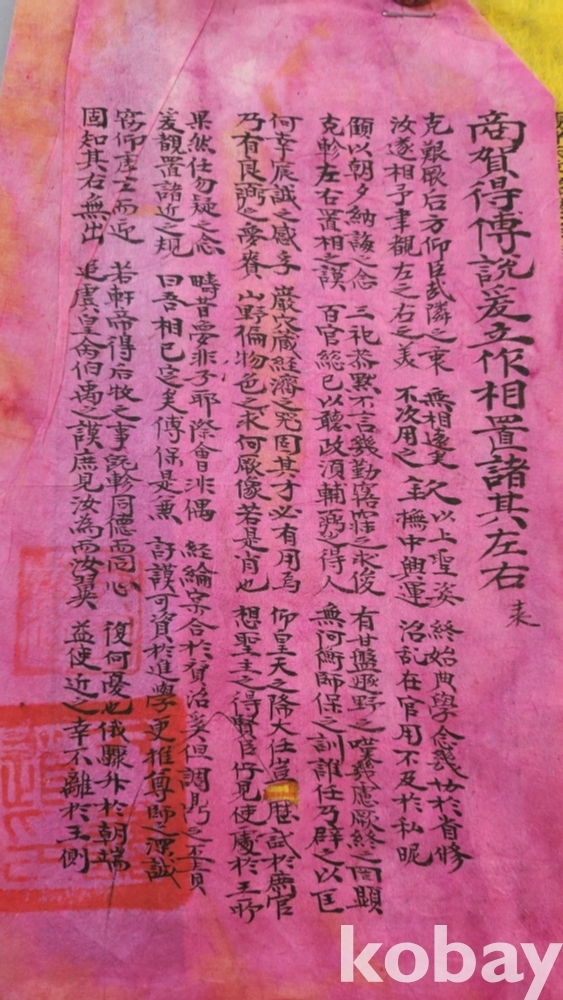 商賀得傅說爰立作相置諸其左右 表
克艱厥后方仰臣哉隣之 無相遠矣久以上聖姿 終始典學念幾 於省修
汝遂相予聿覩左之右之美 不次用之主撫中興運 治乱在官用不及於私昵
願以朝夕納誨之念 三祀恭默不言幾勤寤寐之求俊 有甘盤遯野之嘆幾慮厥終之罔顯
克軫左右置相之謨 百官総已以聽政須輔弼之得人 無阿衡師保之訓誰任乃辟之以匡
何幸宸誠之感孚 巖穴蔵経濟之 固其才必有用焉 仰皇天之降大任豈歷試於庶官
乃有良弼之夢賚 山野徧物色之求何厥像若是肖也 想聖主之得賢臣佇見使處於王所
果然任勿疑之念 時昔夢非予耶際會非偶 経綸宲合於資治奚但調鼎之至
爰覩置諸近之規 曰吾相已定矣傅保是兼 訏謨可資於進學更推尊師之深誠
窃仰虛三而近 若軒帝得后牧之事既軫同德而同心 復何憂也俄驟升於朝端
固知其右無出 追虞皇兪伯禹之謨庶見汝為而汝翼 益使近之幸不離於王側
kobay